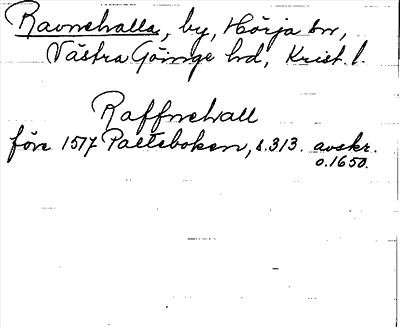 Ravnehalla, by, Hörja sn,
Västra Göinge hd, Krist. l.
Raffnehall
före 1517 Palteboken, s. 313. avskr.
o. 1650.